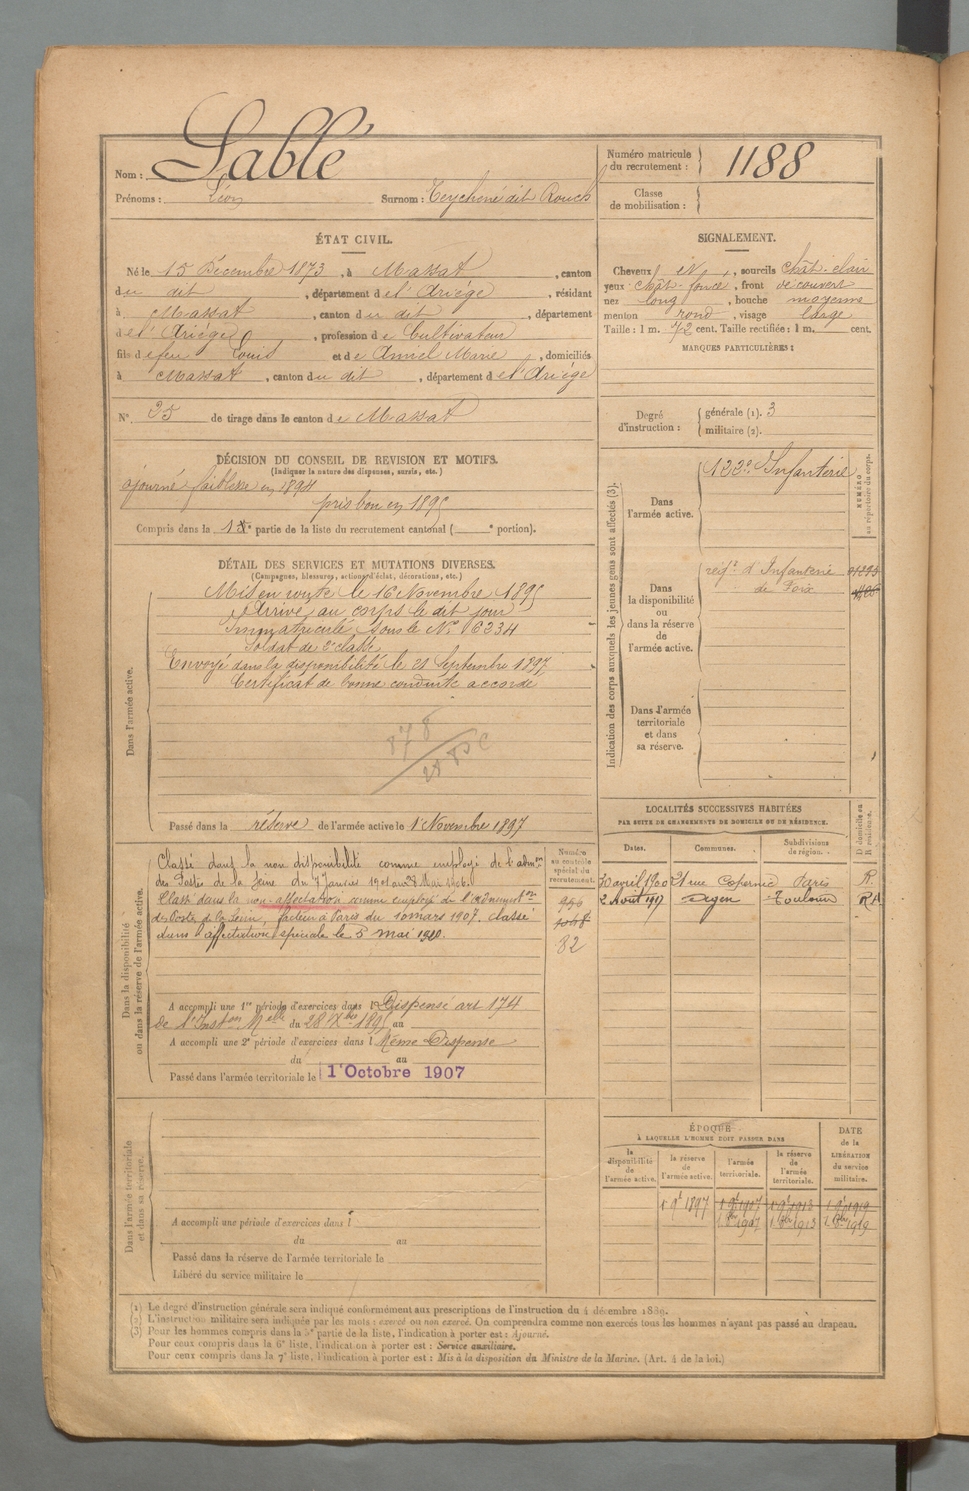 Nom : Sablé
Prénoms : Léon Surnom : Teychené dit Rouch
Numéro matricule du recrutement : 1188
Classe de mobilisation :
ÉTAT CIVIL.
Né le 15 Décembre 1873, à Massat, canton
du dit, département de l'Ariège, résidant
à Massat, canton du dit, département
de l'Ariège, profession de Cultivateur
fils de feu Louis et de Marie, domiciliés
à Massat, canton du dit, département de l'Ariège
N° 25 de tirage dans le canton de Massat
SIGNALEMENT.
Cheveux, sourcils chât-clair
yeux chât-foncé, front découvert
nez long, bouche moyenne
menton rond, visage large
Taille : 1 m. 72 cent. Taille rectifiée : 1 m. cent.
MARQUES PARTICULIÈRES :
Degré d'instruction : générale (1). 3
militaire (2).
DÉCISION DU CONSEIL DE REVISION ET MOTIFS.
(Indiquer la nature des dispenses, sursis, etc.)
ajourné faiblesse en 1894
pris bon en 1895
Compris dans la partie de la liste du recrutement cantonal ( e portion).
DÉTAIL DES SERVICES ET MUTATIONS DIVERSES.
(Campagnes, blessures, actions d'éclat, décorations, etc.)
Dans l'armée active.
Mis en route le 16 Novembre 1895
Arrivé au corps le dit jour
Immatriculé sous le N° 6234
Soldat de 2e classe
Envoyé dans la disponibilité le 21 Septembre 1897
Certificat de bonne conduite accordé
Passé dans la réserve de l'armée active le 1 Novembre 1897
Indication des corps auxquels les jeunes gens sont affectés (3).
NUMÉRO au répertoire du corps.
Dans l'armée active.
122e Infanterie
Dans la disponibilité ou dans la réserve de l'armée active.
regt d'Infanterie
de Foix
Dans l'armée territoriale et dans sa réserve.
LOCALITÉS SUCCESSIVES HABITÉES
PAR SUITE DE CHANGEMENTS DE DOMICILE OU DE RÉSIDENCE.
Dates. Communes. Subdivisions de région. D domicile ou R résidence.
30 avril 1900 21 rue Copernic Paris R.
2 Août 1917 Toulouse
Dans la disponibilité ou dans la réserve de l'armée active.
Numéro au contrôle spécial du recrutement.
Classé dans la non disponibilité comme employé de l'admon
des Postes de la Seine du 7 Janvier 1901 au 28 Mai 1906.
Classé dans la non-affectation comme employé de
des Postes de la Seine, facteur à Paris du 10 mars 1907. Classé
dans l'affectation spéciale le 5 mai 1920.
82
A accompli une 1re période d'exercices dans l Dispensé art 174
de l'Inston Melle du 28 Xbre 1895 au
A accompli une 2e période d'exercices dans l Même Dispense
du au
Passé dans l'armée territoriale le 1 Octobre 1907
Dans l'armée territoriale et dans sa réserve.
A accompli une période d'exercices dans l
du au
Passé dans la réserve de l'armée territoriale le
Libéré du service militaire le
ÉPOQUE
À LAQUELLE L'HOMME DOIT PASSER DANS
DATE de la LIBÉRATION du service militaire.
la disponibilité de l'armée active. la réserve de l'armée active. l'armée territoriale. la réserve de l'armée territoriale.
1 9bre 1897 1 9bre 1907 1 9bre 1913 1 9bre 1919
1 8bre 1907 1 8bre 1913 1 8bre 1919
(1) Le degré d'instruction générale sera indiqué conformément aux prescriptions de l'instruction du 4 décembre 1889.
(2) L'instruction militaire sera indiquée par les mots : exercé ou non exercé. On comprendra comme non exercés tous les hommes n'ayant pas passé au drapeau.
(3) Pour les hommes compris dans la 5e partie de la liste, l'indication à porter est : Ajourné.
Pour ceux compris dans la 6e liste, l'indication à porter est : Service auxiliaire.
Pour ceux compris dans la 7e liste, l'indication à porter est : Mis à la disposition du Ministre de la Marine. (Art. 4 de la loi.)